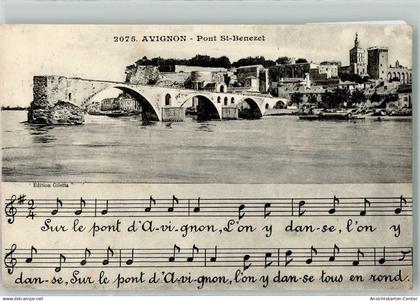 2075. AVIGNON - Pont St-Benezet
Edition Giletta
2 4
Sur le pont d'A-vi-gnon, L'on y dan-se, l'on y
dan-se, Sur le pont d'A-vi-gnon, l'on y dan-se tous en rond.
www.Ansichtskarten-Center.de